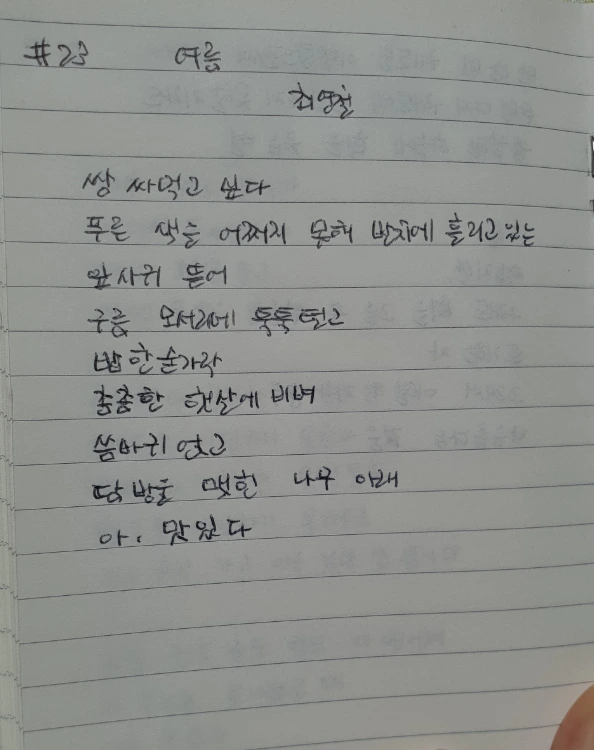 #23 여름
최영철
쌈 싸먹고 싶다
푸른 색을 어쩌지 못해 발치에 흘리고 있는
잎사귀 뜯어
구름 모서리에 툭툭 털고
밥 한 숟가락
촘촘한 햇살에 비벼
씀바귀 얹고
땀방울 맺힌 나무 아래
아, 맛있다